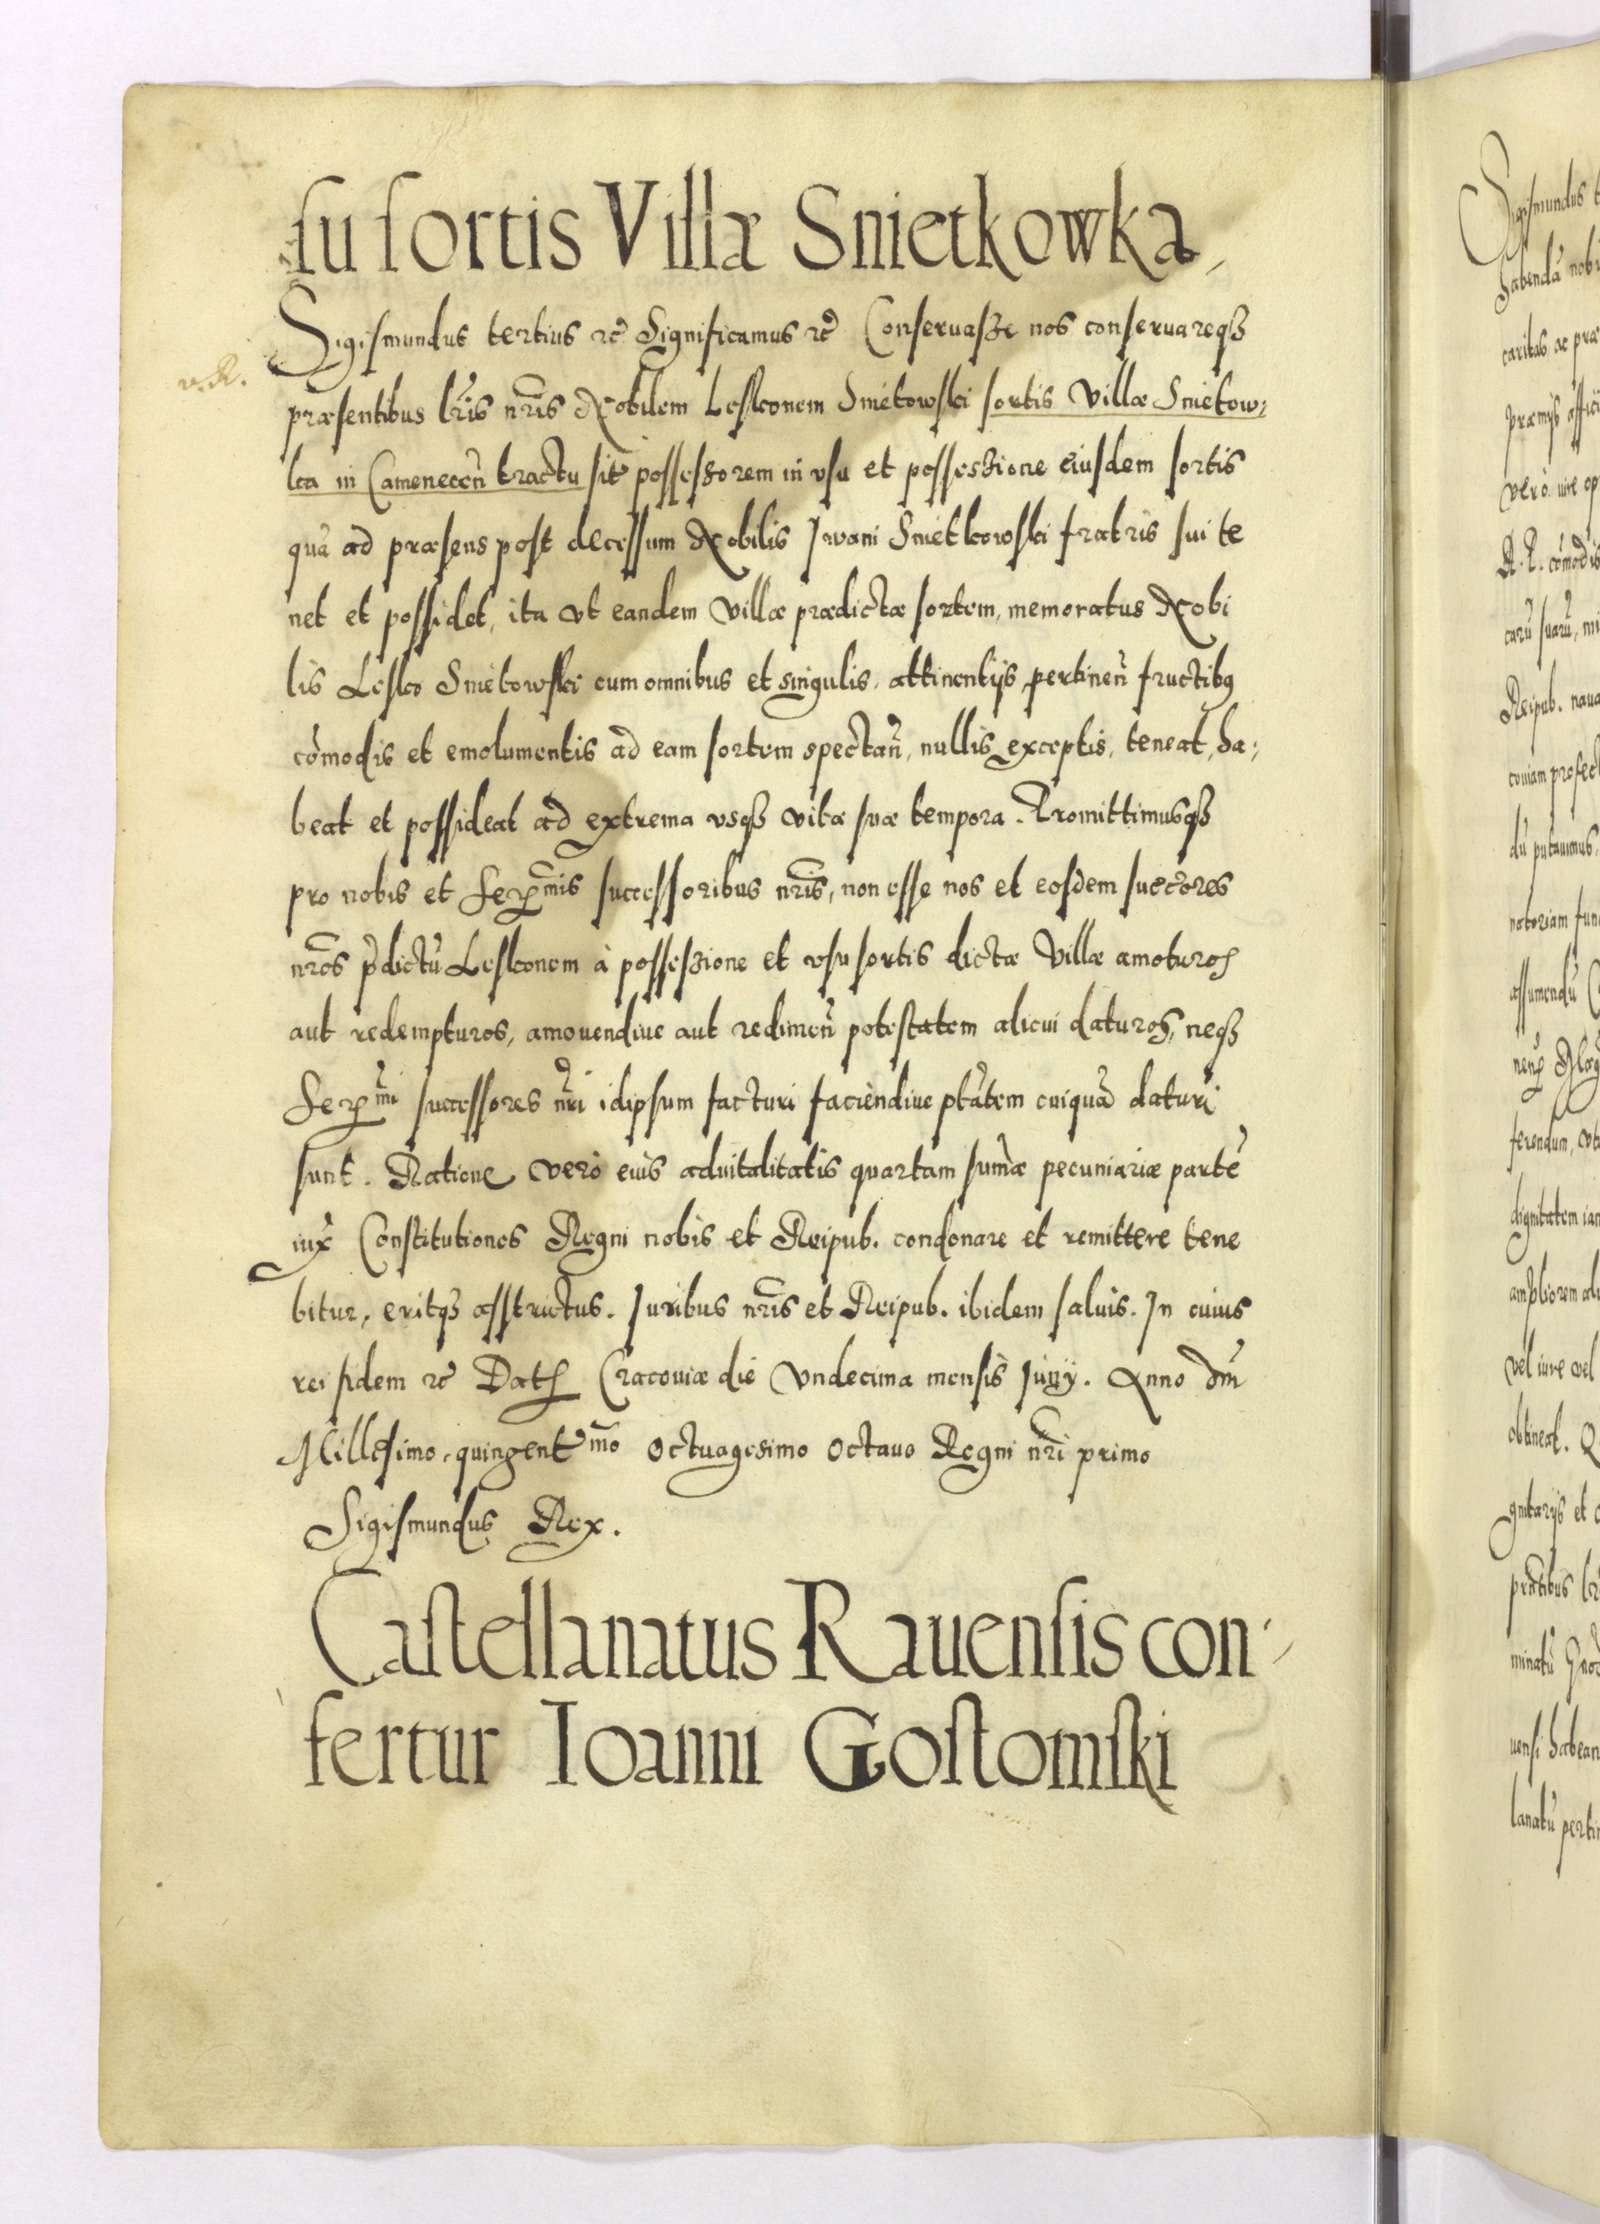 su sortis Villæ Snietkowka,
Sigismundus tertius etc̃ Significamus etc̃ Conseruasse nos conseruareqȝ
v. R.
præsentibus lr̃is nr̃is Nobilem Leskonem Snietowski sortis Villæ Snietow:
ka in Camenecen̄ tractu sit̄ possessorem in vsu et possessione eiusdem sortis
quā ad præsens post decessum Nobilis Iwani Snietkowski fratris sui te
net et possidet, ita vt eandem Villæ prædictæ sortem, memoratus Nobi
lis Lesko Snietowski cum omnibus et singulis, attinentijs, pertinen̄ fructibꝰ
cōmodis et emolumentis ad eam sortem spectan̄, nullis exceptis, teneat, ha:
beat et possideat ad extrema vsqȝ vitæ suæ tempora. Promittimusqȝ
pro nobis et Serꝑ mis successoribus nr̃is, non esse nos et eosdem succ̄ores
nr̃os p̄dictū Leskonem à possessione et vsu sortis dictæ Villæ amoturos
aut redempturos, amouendiue aut redimen̄ potestatem alicui daturos, neqȝ
Serꝑ mi successores nr̃i idipsum facturi faciendiue ptātem cuiquā daturi
sunt. Ratione vero eius aduitalitatis quartam sum̄æ pecuniariæ partē
iux̄ Constitutiones Regni nobis et Reipub. condonare et remittere tene
bitur, eritqȝ asstrictus. Iuribus nr̃is et Reipub. ibidem saluis. In cuius
rei fidem etc̃ Dat Cracouiæ die Vndecima mensis Iunij. Anno Dn̄i
Millesimo, quingent mo Octuagesimo Octauo Regni nr̃i primo
Sigismundus Rex.
Castellanatus Rauensis con
fertur Ioanni Gostomski